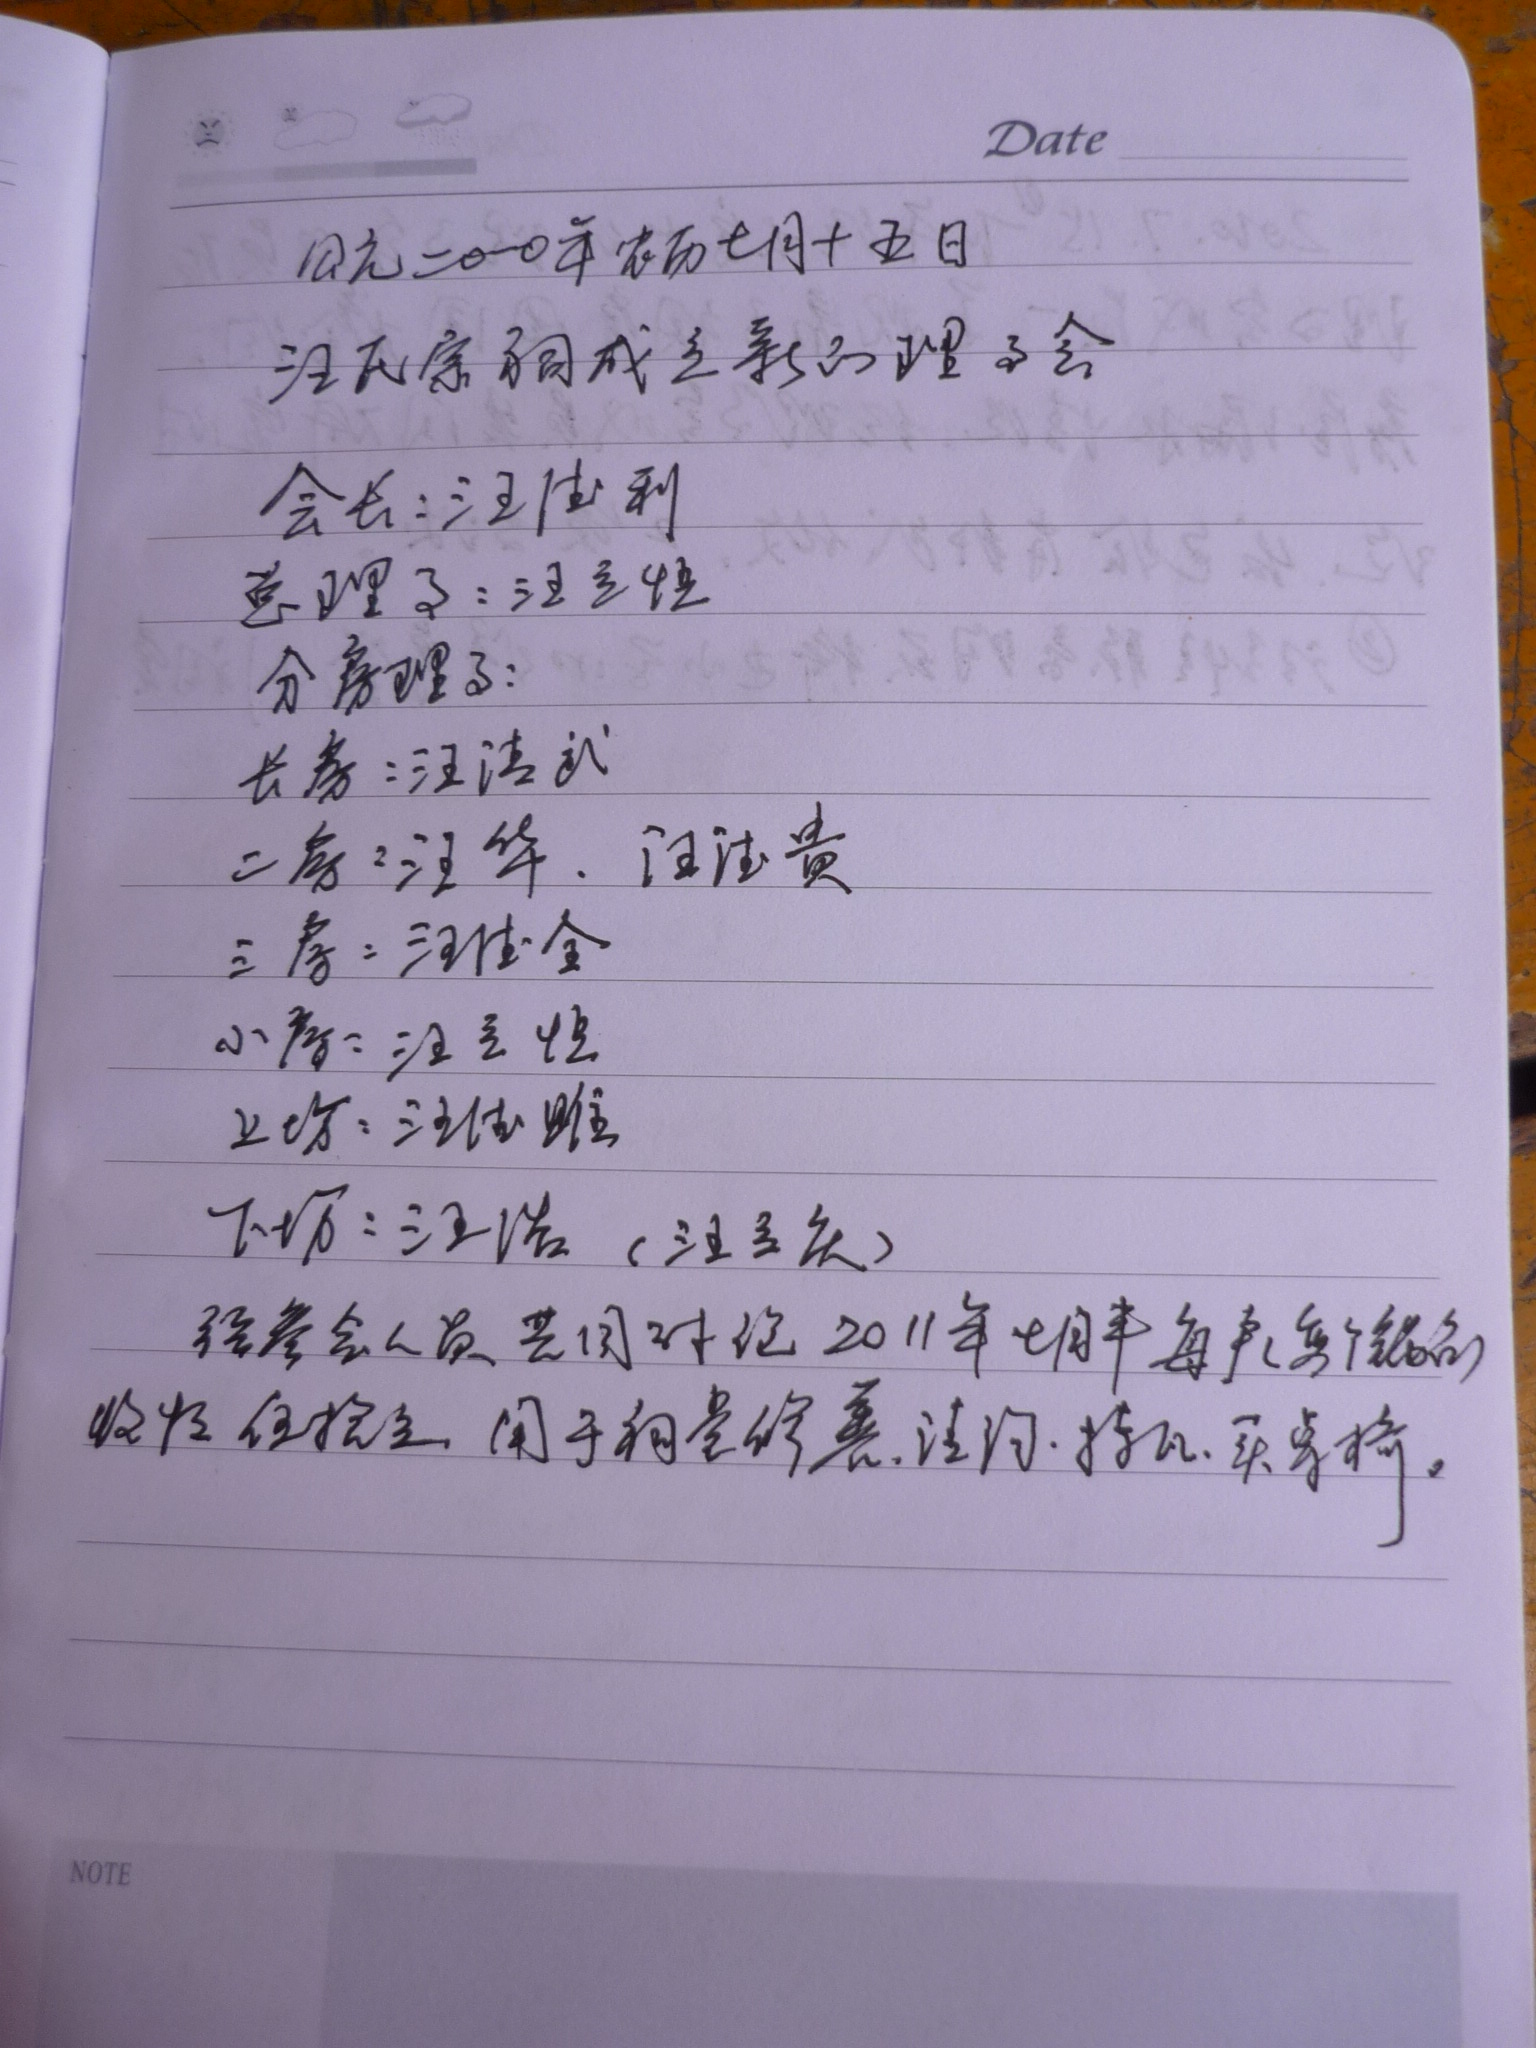 Date
公元二〇一〇年农历七月十五日
汪氏宗祠成立新的理事会
会长:汪德利
总理事:汪立恒
分房理事:
长房:汪法武
二房:汪华、汪法贵
三房:汪德全
小房:汪立恒
上坊:汪德
下坊:汪浩(汪立庆)
经参会人员共同讨论2011年七月半每
收 用于祠堂修善、清沟、持瓦、买桌椅。
NOTE